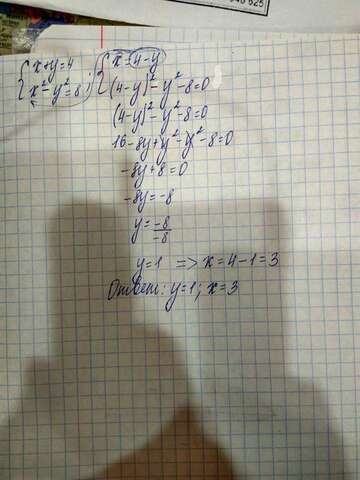 {x+y=4 ; {x=4-y
{x²-y²=8 ; {(4-y)²-y²-8=0
(4-y)²-y²-8=0
16-8y+y²-y²-8=0
-8y+8=0
-8y=-8
y=-8/-8
y=1 => x=4-1=3
Ответ: y=1; x=3